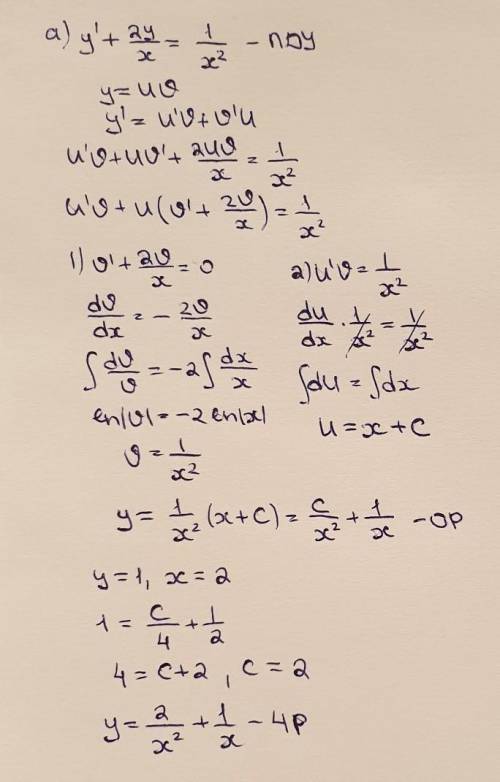 а) y' + 2y/x = 1/x² - ЛДУ
y = uϑ
y' = u'ϑ + ϑ'u
u'ϑ + uϑ' + 2uϑ/x = 1/x²
u'ϑ + u(ϑ' + 2ϑ/x) = 1/x²
1) ϑ' + 2ϑ/x = 0
dϑ/dx = - 2ϑ/x
∫ dϑ/ϑ = -2 ∫ dx/x
ln|ϑ| = -2 ln|x|
ϑ = 1/x²
2) u'ϑ = 1/x²
du/dx · 1/x² = 1/x²
∫du = ∫dx
u = x + C
y = 1/x² (x + C) = C/x² + 1/x - ОР
y = 1, x = 2
1 = C/4 + 1/2
4 = C + 2, C = 2
y = 2/x² + 1/x - ЧР